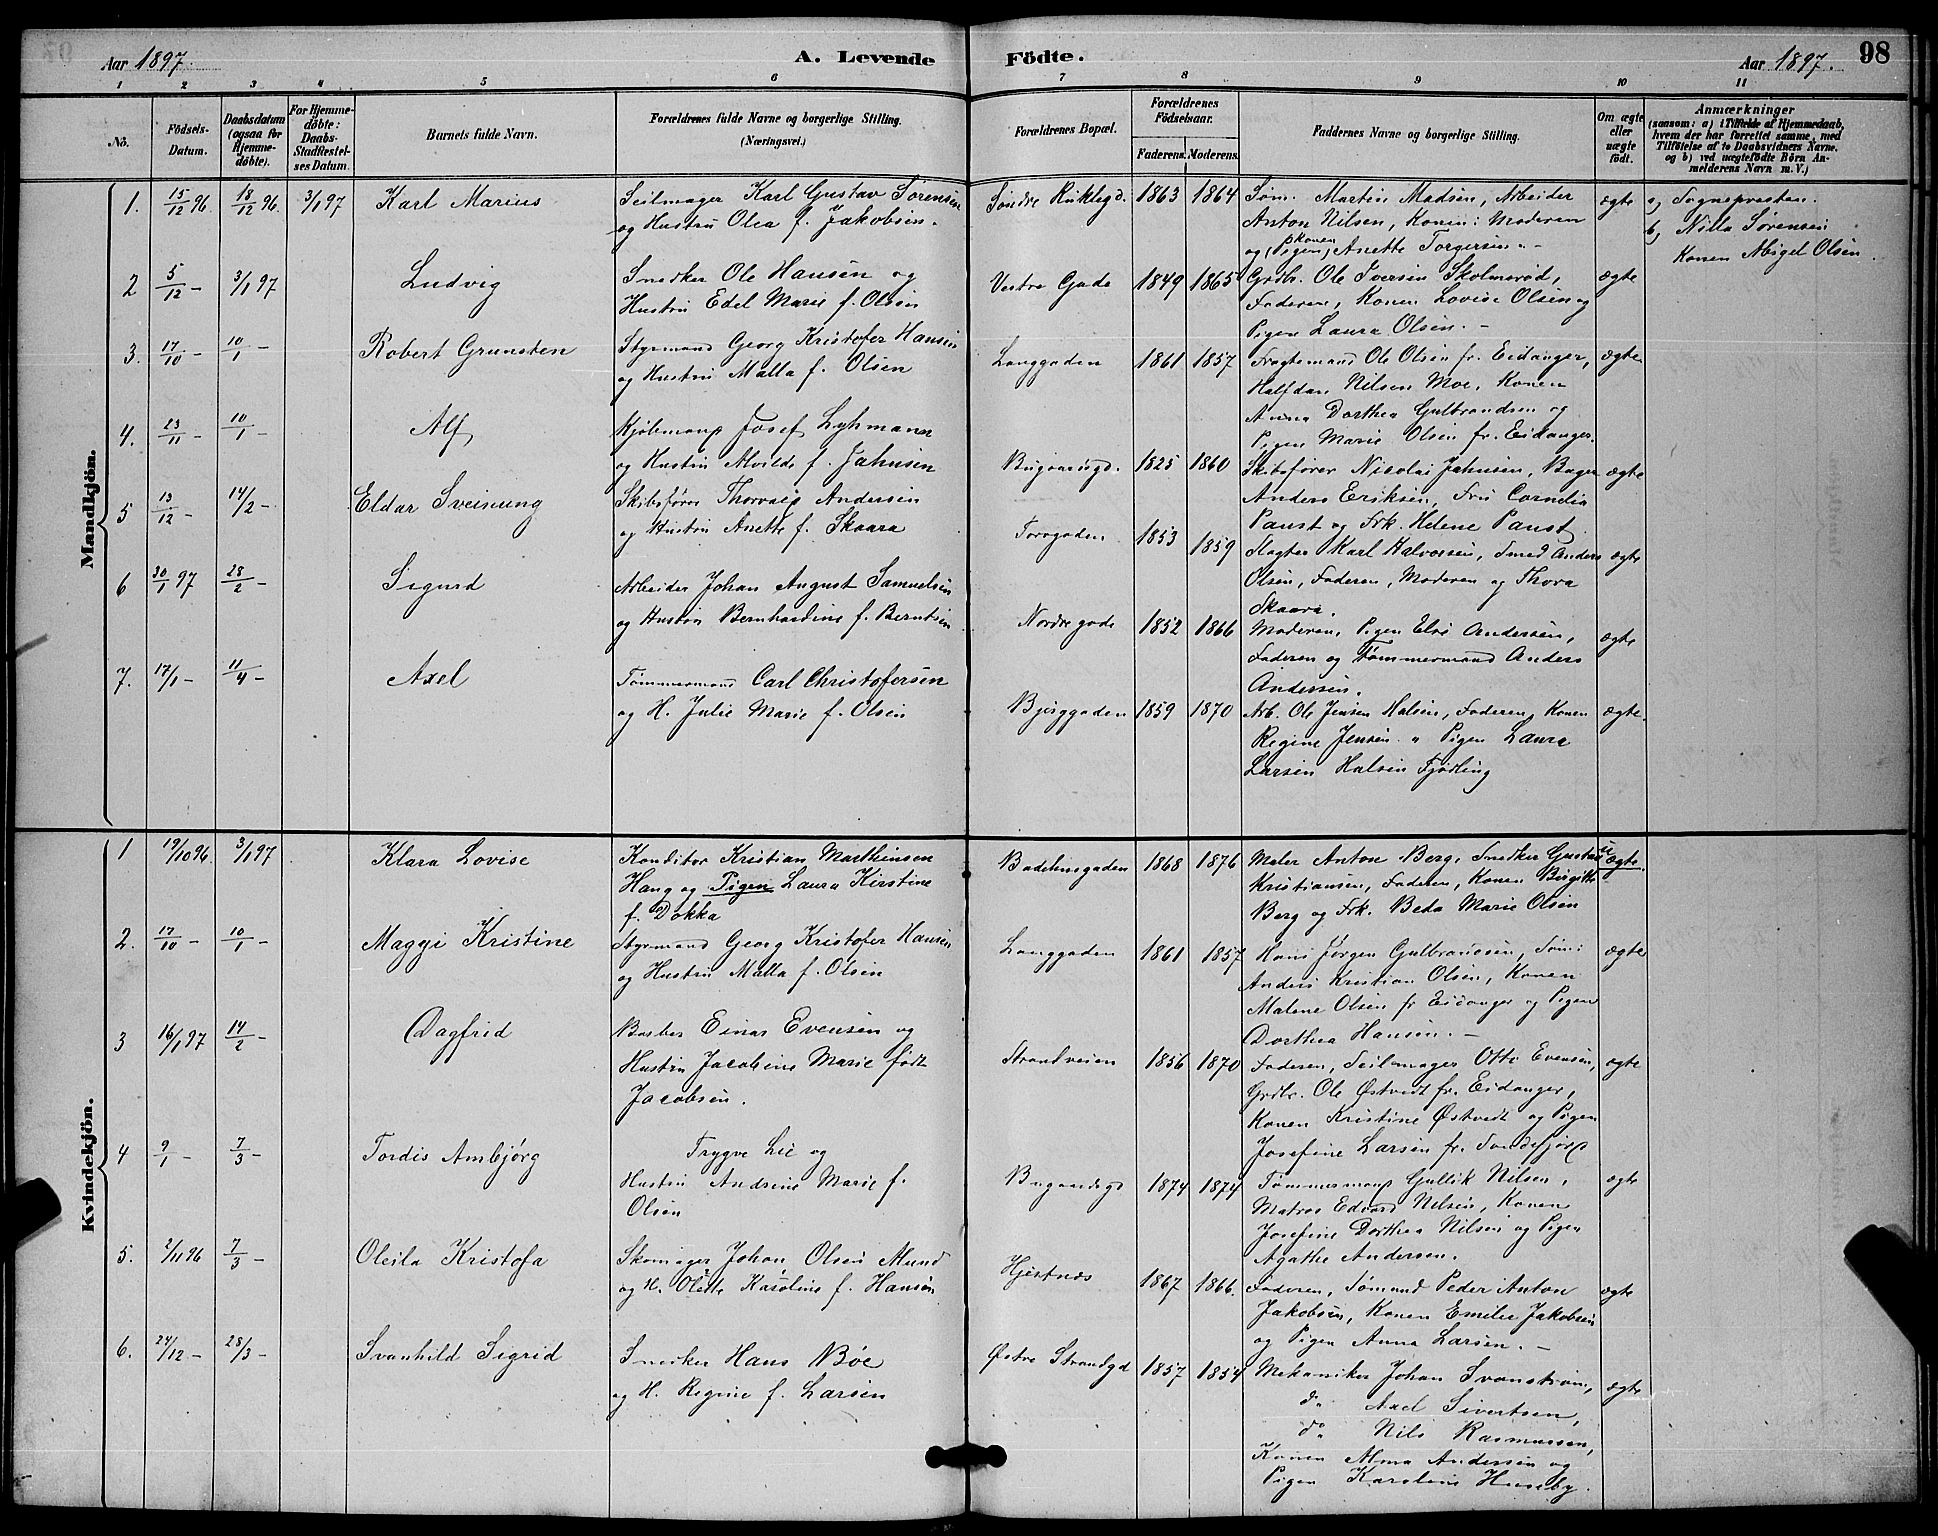 Aar 1897. A. Levende Födte. Aar 1897. 98
1 2 3 4 5 6 7 8 9 10 11
No.
Födsels-Datum.
Daabsdatum (ogsaa for Hjemmedöbte).
For Hjemmedöbte: Daabs-Stadfestelses Datum.
Barnets fulde Navn.
Forældrenes fulde Navne og borgerlige Stilling. (Næringsvei.)
Forældrenes Bopæl.
Forældrenes Födselsaar.
Faderens. Moderens.
Faddernes Navne og borgerlige Stilling.
Om ægte eller uægte födt.
Anmærkninger
(saasom: a) i Tilfælde af Hjemmedaab, hvem der har forrettet samme, med Tilföielse af to Daabsvidners Navne, og b) ved uægtefödte Börn Anmelderens Navn m. V.)
Mandkjön.
1. 15/12 96. 18/12 96. 3/1 97 Karl Marius
Seilmager Karl Gustav Sørensen
og Hustru Olea f. Jakobsen.
1863 1864
Søm. Martin Madsen, Arbeider
Anton Nilsen, Konen: Moderen
og (Pigen) Konen Anette Torgersen. -
ægte
a, Sogneprsten.
b, Nilla Sørensen
Konen Abigel Olsen.
2 5/12 - 3/1 97 Ludvig
Snedker Ole Hansen og
Hustru Edel Marie f. Olsen
Vestre Gade 1849 1865
Grdbr. Ole Iversen Skolmerød,
Faderen, Konen Lovise Olsen og
Pigen Laura Olsen. -
ægte
3. 17/10 - 10/1 - Robert Grunsten
Styrmand Georg Kristofer Hansen
og Hustru Malla f. Olsen
Langgaden 1861 1857
Fragtemand Ole Olsen fr. Eidanger,
Halfdan Nilsen Moe, Konen
Anna Dorthea Gulbrandsen og
Pigen Marie Olsen fr. Eidanger.
ægte
4. 23/11 - 10/1 - Alf
Kjøbmand Josef Lyhmann
og Hustru Alvilde f. Jahnsen
Bugaardsgd. 1825 1860
Skibsfører Nicolai Jahnsen, Bager
Anders Eriksen, Fru Cornelia
Paust og Frk. Helene Paust
ægte
5 13/12 - 14/2 - Eldar Sveinung
Skibsfører Thorvald Andersen
og Hustru Anette f. Skaara
Torvgaden 1853 1859
Slagter Karl Halvorsen, Smed Anders
Olsen, Faderen, Moderen og Thora
Skaara.
ægte
6 30/1 97 28/2 - Sigurd
Arbeider Johan August Samuelsen
og Hustru Bernhardine f. Berntsen
Nordre gade 1852 1866
Moderen, Pigen Elvi Andersen,
Faderen og Tømmermand Anders
Andersen.
ægte
7. 17/1 - 11/4 - Axel
Tømmermand Carl Christofersen
og H. Julie Marie f. Olsen
Bjerggaden 1859 1870
Arb. Ole Jensen Halsen, Faderen, Konen
Regine Jensen. " Pigen Laura
Larsen Halsen Tjødling
ægte.
Kvindekjön.
1 19/10 96. 3/1 97 Klara Lovise
Konditor Kristian Marthinsen
Haug og Pigen Laura Kirstine
f. Dokka
1868 1876
Maler Anton Berg, Snedker Gustav
Kristiansen, Faderen, Konen Birgitte
Berg og Frk. Beda Marie Olsen
uægte.
2. 17/10 - 10/1 - Maggi Kristine
Styrmand Georg Kristofer Hansen
og Hustru Malla f. Olsen
Langgaden 1861 1857
Hans Jørgen Gulbrandsen, Søm:
Anders Kristian Olsen, Konen
Malene Olsen fr Eidanger og Pigen
Dorthea Hansen. -
ægte
3 16/1 97 14/2 - Dagfrid
Barber Einar Evensen og
Hustru Jacobine Marie født
Jacobsen.
Strandveien 1856 1870
Faderen, Seilmager Otto Evensen,
Grdbr. Ole Østvedt fr. Eidanger,
Konen Kristine Østvedt og Pigen
Josefine Larsen fr. Sandefjord
ægte
4 9/1 - 7/3 - Tordis Ambjørg
Trygve Lie og
Hustru Andrine Marie f.
Olsen
Bugaardsgd 1874 1874
Tømmermand Gullik Nilsen,
Matros Edvard Nilsen, Konen
Josefine Dorthea Nilsen og Pigen
Agathe Andersen.
ægte
5. 2/11 96 7/3 - Oleila Kristofa
Skomager Johan Olsen Mund
og H. Olette Karoline f. Hansen
Hjertnes 1867 1866.
Faderen, Sømand Peder Anton
Jakobsen, Konen Emilie Jakobsen
og Pigen Anna Larsen. -
ægte
6. 24/12 - 28/3 - Svanhild Sigrid
Snedker Hans Bøe
og H. Regine f. Larsen
Østre Strandgd 1857 1854
Mekaniker Johan Svanstrøm,
do Axel Sivertsen,
do Nils Rasmussen,
Konen Alma Andersen og
Pigen Karoline Huseby.
ægte